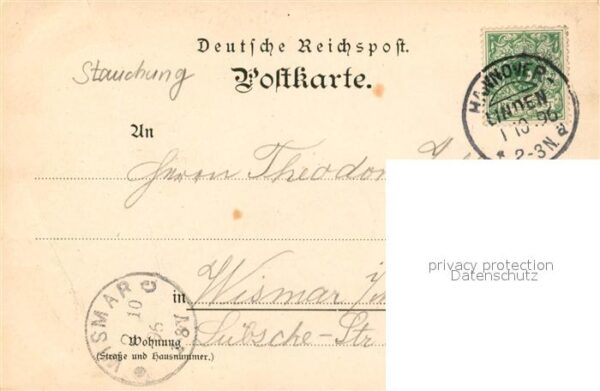 Deutsche Reichspost.
Stauchung
Postkarte.
HANNOVER-
LINDEN
1 10 96
* 2-3 N.
An
Herrn Theodor
privacy protection
Datenschutz
in Wismar
Lübsche-Str
WISMAR
10
96
Wohnung
(Straße und Hausnummer.)